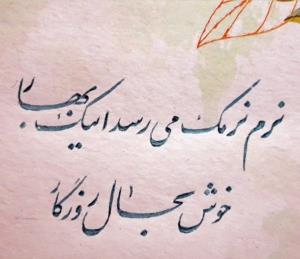 نرم نرمک می رسد اینک بهار
خوش بحال روزگار